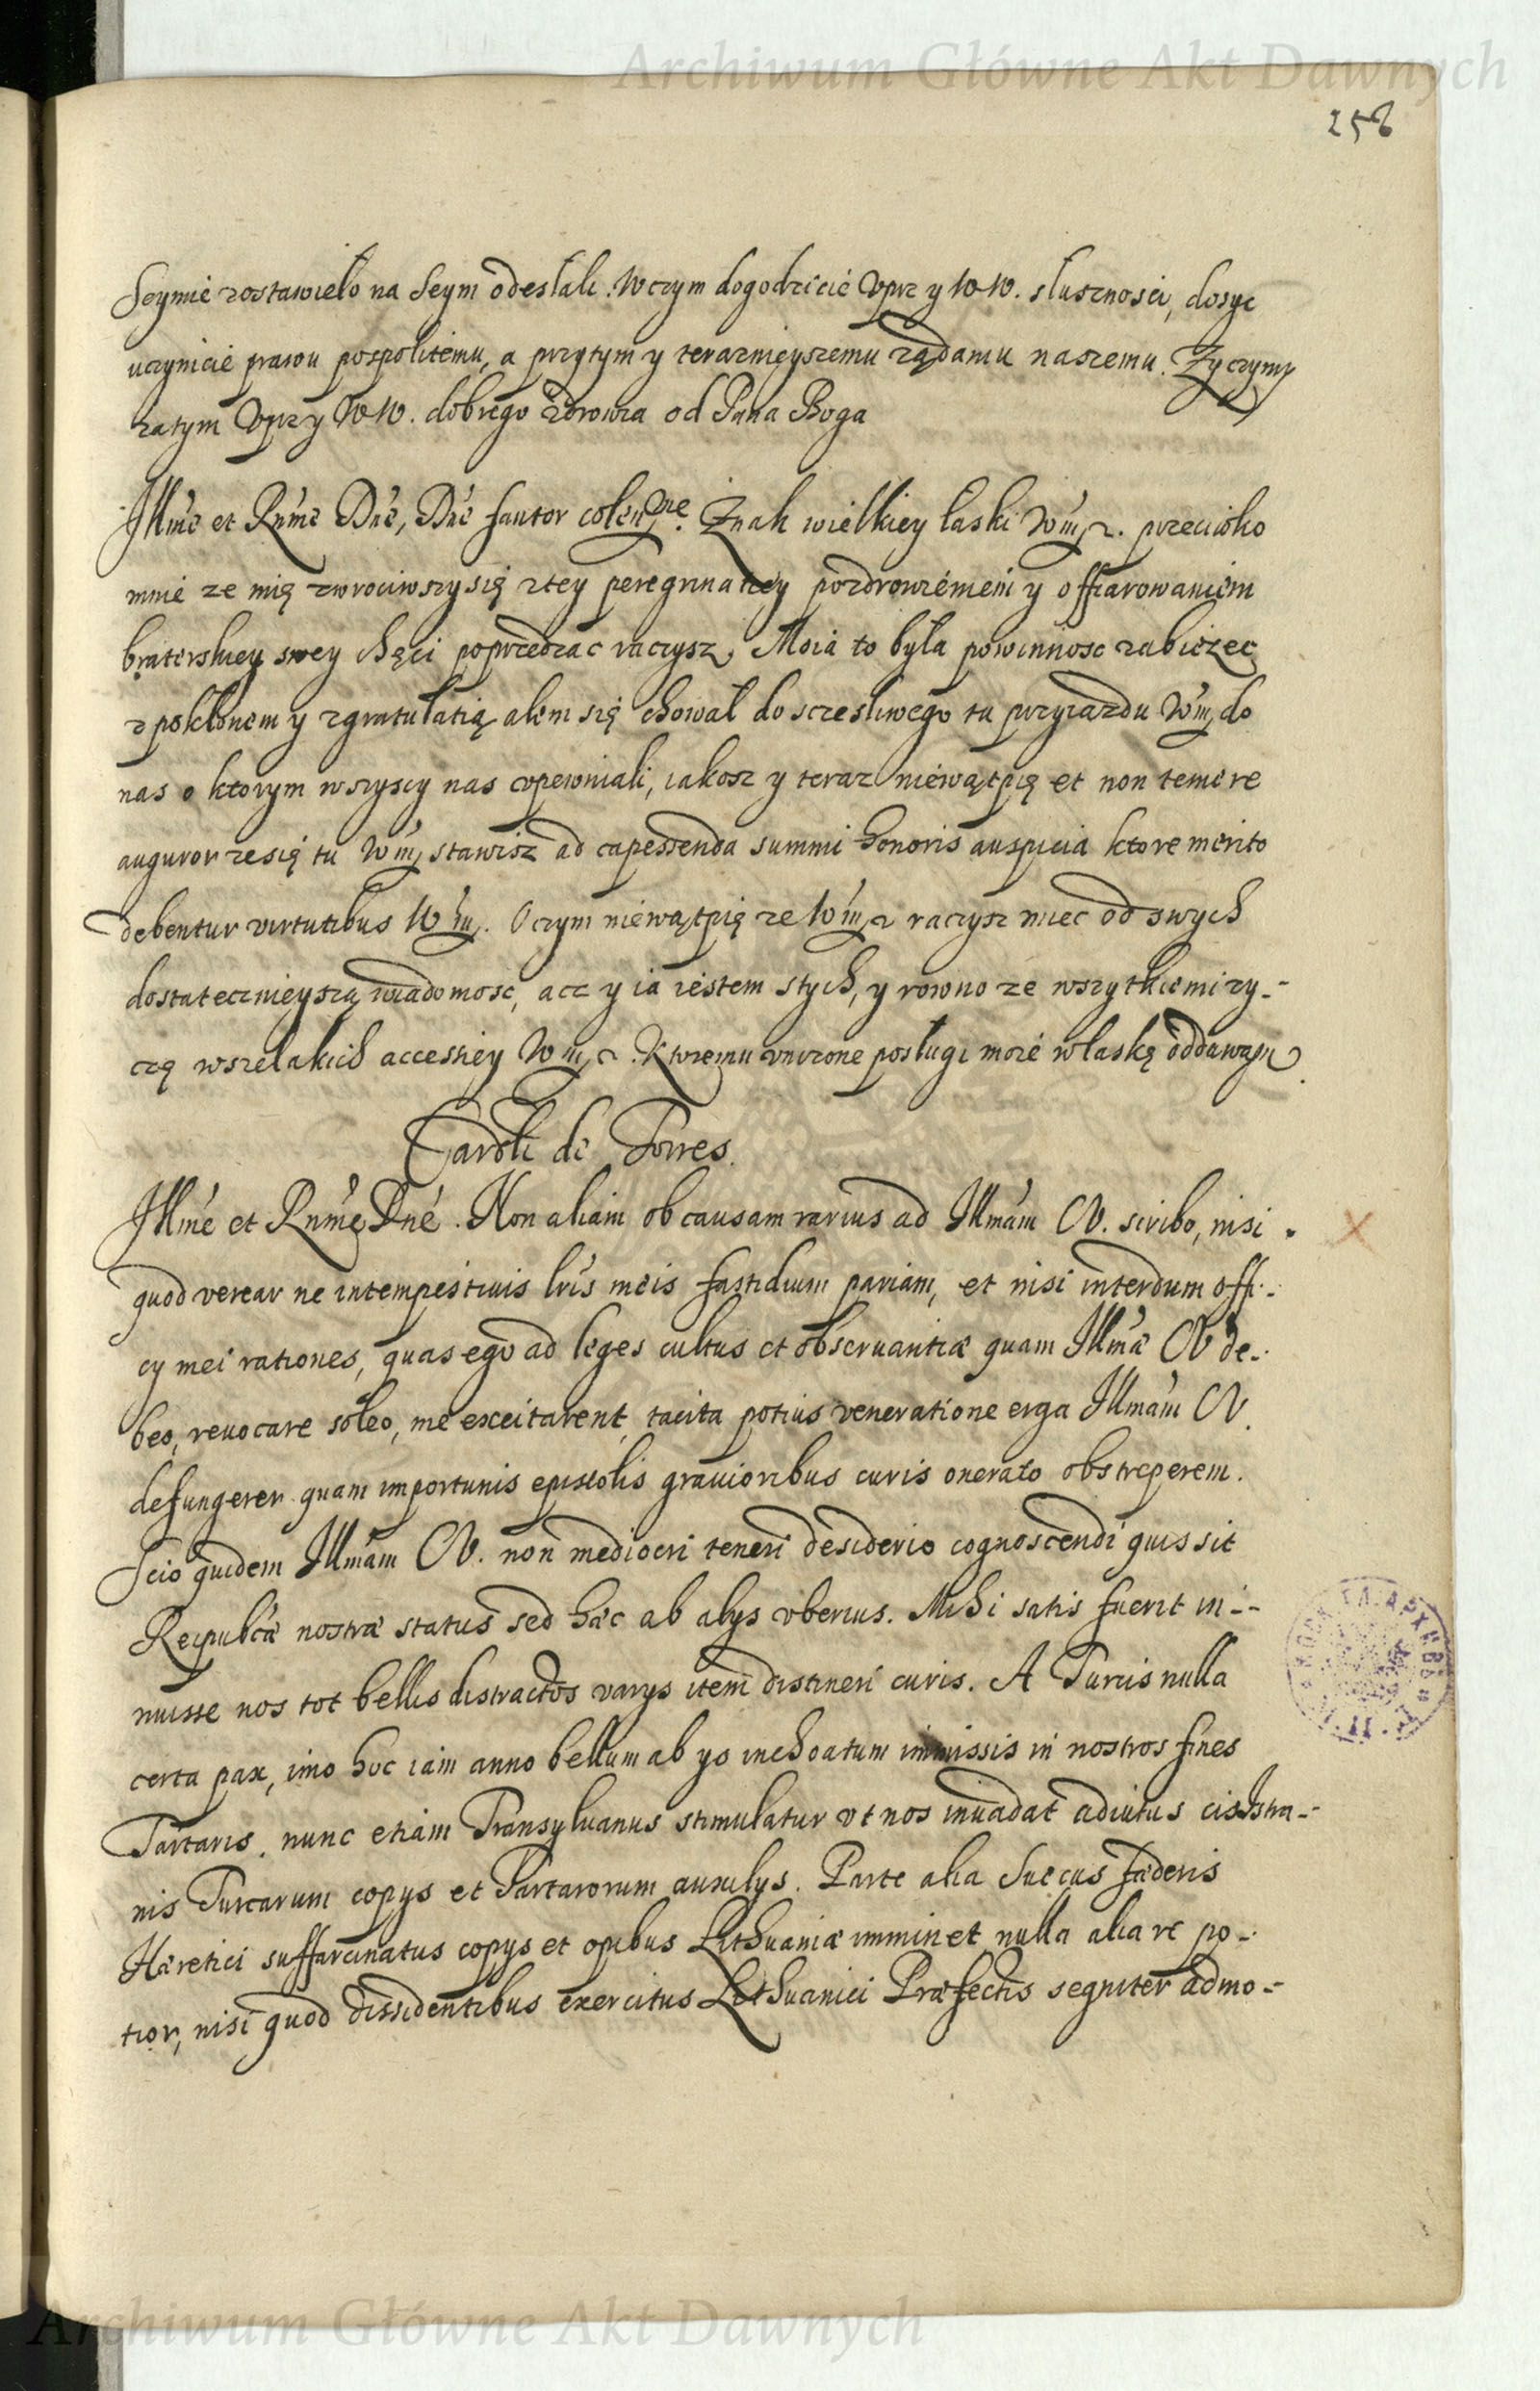 Archiwum Główne Akt Dawnych
258
Seymie zostawieło na Seym odesłali. W czym dogodzicie Uprz y WW. słusznosci, dosyc
uczynicie prawu pospolitemu, a przytym y teraznieyszemu rządaniu naszemu. Zyczymy
zatym Uprzy WW. dobrego zdrowia od Pana Boga
Illme et Rnme Dne, Dne fautor colenme. Znak wielkiey łaski Wm. przeciwko
mnie ze mię zwrociwszy się z tey peregrinatiey pozdrowieniem y offiarowaniem
braterskiey swey chęci poprzedzac raczysz, Moia to była powinnosc zabiezec
z pokłonem y z gratulatią alem się chował do sczesliwego tu przyiazdu Wm, do
nas o ktorym wszyscy nas upewniali, iakosz y teraz niewątpię et non temere
auguror ze się tu Wm, stawisz ad capessenda summi honoris auspicia ktore merito
debentur virtutibus Wm,. O czym niewątpię ze Wm, raczysz miec od swych
dostatecznieyszą wiadomosc, acz y ia iestem s tych, y rowno ze wszytkiemi zy-
czę wszelakich accessiey Wm,. Ktoremu unizone posługi moie w łaskę oddawam
Caroli de Torres.
Illme et Rnme Dne. Non aliam ob causam rarius ad Illmam V. scribo, nisi
quod verear ne intempestiuis lris meis fastidium pariam, et nisi interdum offi-
cy mei rationes, quas ego ad leges cultus et obseruantiæ quam Illmæ V de-
beo, reuocare soleo, me excitarent, tacita potius veneratione erga Illmam V.
defungerer quam importunis epistolis grauioribus curis onerato obstreperem.
Scio quidem Illmam V. non mediocri teneri desiderio cognoscendi quis sit
Reipublcæ nostræ status sed hæc ab alys uberius. Mihi satis fuerit in-
nuisse nos tot bellis distractos varys item distineri curis. A Turcis nulla
certa pax, imo hoc iam anno bellum ab ys inchoatum immissis in nostros fines
Tartaris. nunc etiam Transyluanus stimulatur ut nos inuadat adiutus cis Istra-
nis Turcarum copys et Tartarorum auxilys. Parte alia Suecus fæderis
Hæretici suffarcinatus copys et opibus Lithuaniæ imminet nulla alia re po-
tior, nisi quod dissidentibus exercitus Lithuanici Præfectis segniter admo-
Archiwum Główne Akt Dawnych